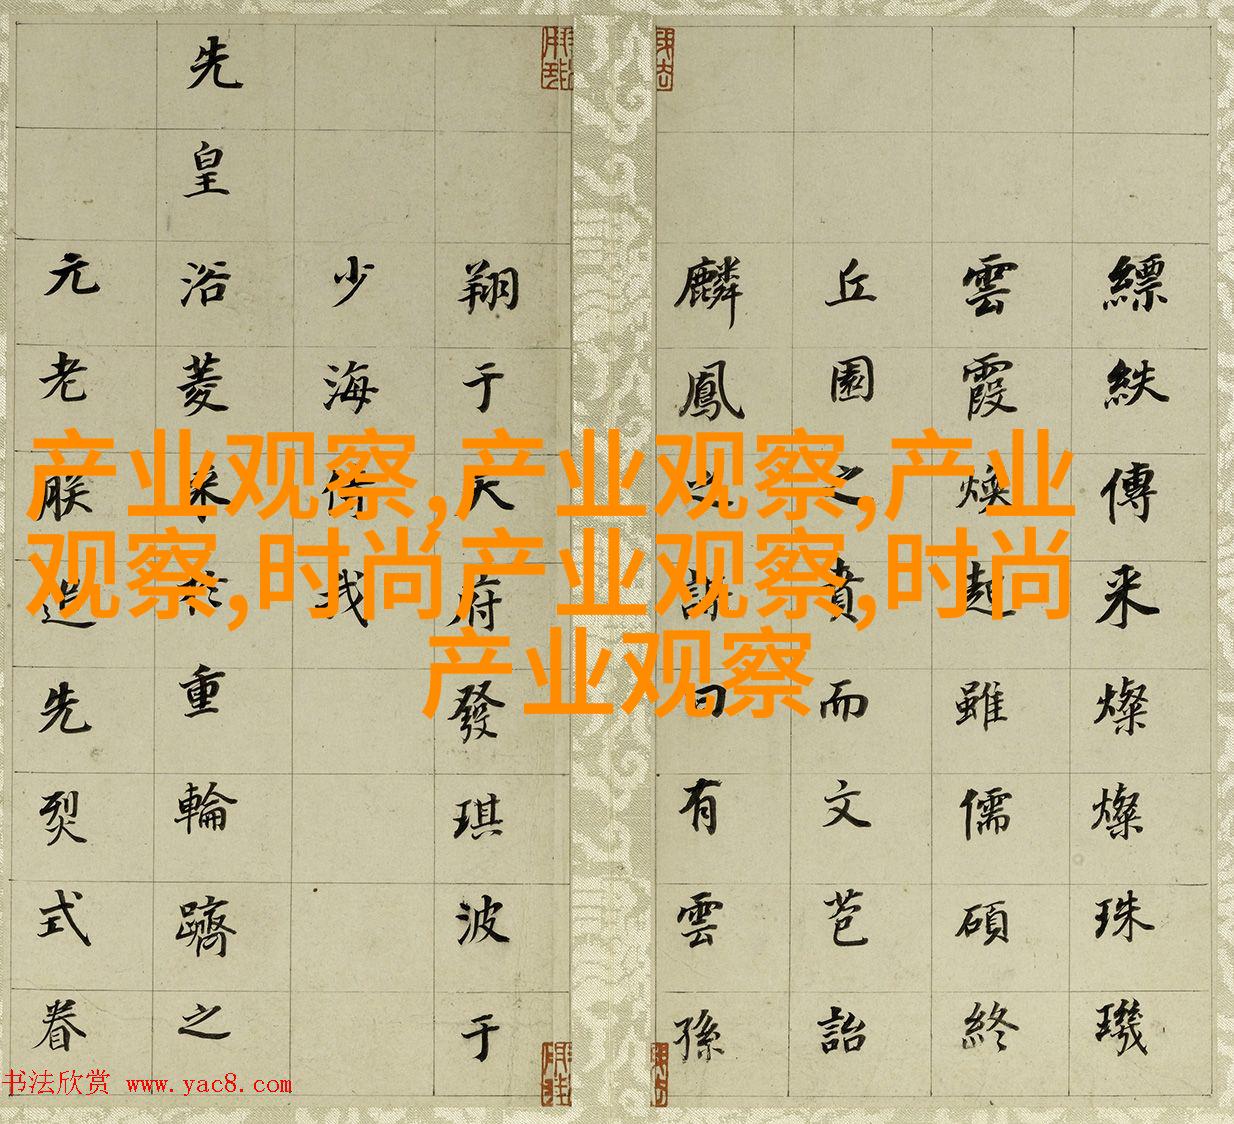 縹紩傳采燦燦珠璣
雲霞煥起雖儒碩終
丘園之賁而文苞詒
麟鳳之謀曰有雲孫
翔于天府發琪波于
少海侍我
先皇浴菱采於重輪躋之
元老朕追先烈式眷
产业观察,产业观察,产业
观察,时尚产业观察,时尚
产业观察
书法欣赏 www.yac8.com